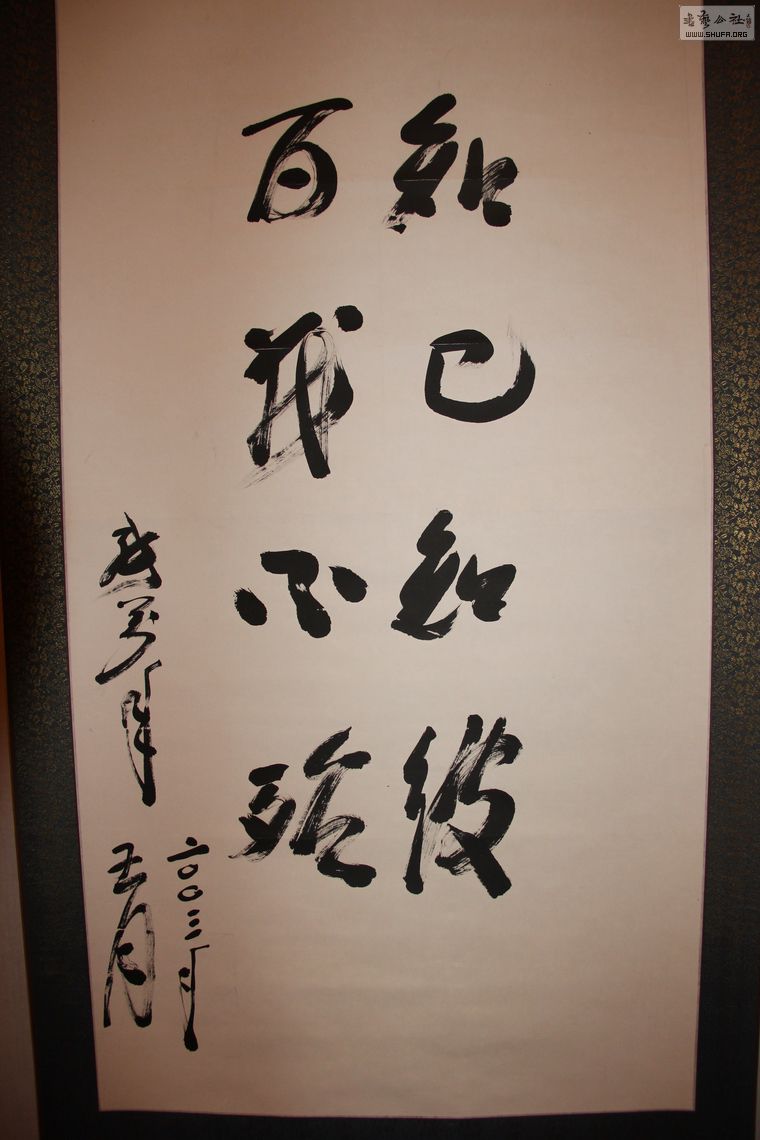 知己知彼
百战不殆
二〇〇三年
五月
书艺公社
WWW.SHUFA.ORG